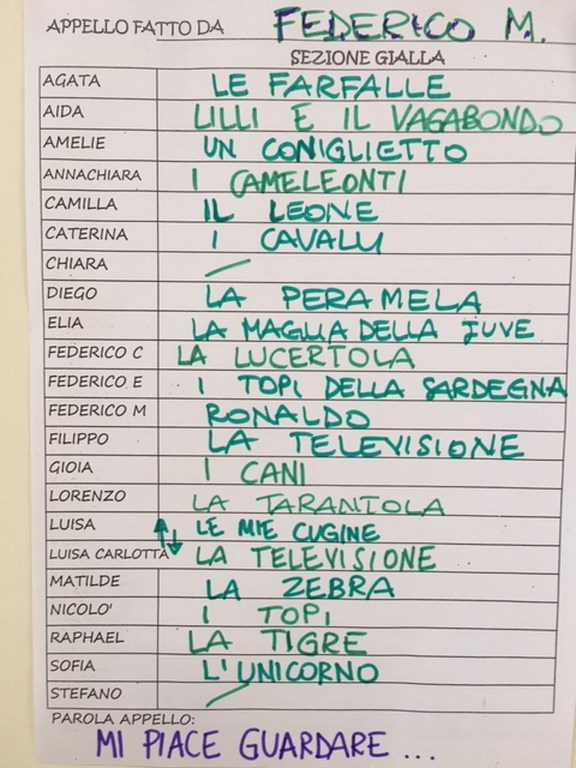 APPELLO FATTO DA FEDERICO M.
SEZIONE GIALLA
AGATA LE FARFALLE
AIDA LILLI E IL VAGABONDO
AMELIE UN CONIGLIETTO
ANNACHIARA I CAMELEONTI
CAMILLA IL LEONE
CATERINA I CAVALLI
CHIARA
DIEGO LA PERAMELA
ELIA LA MAGLIA DELLA JUVE
FEDERICO C LA LUCERTOLA
FEDERICO E I TOPI DELLA SARDEGNA
FEDERICO M RONALDO
FILIPPO LA TELEVISIONE
GIOIA I CANI
LORENZO LA TARANTOLA
LUISA LE MIE CUGINE
LUISA CARLOTTA LA TELEVISIONE
MATILDE LA ZEBRA
NICOLO' I TOPI
RAPHAEL LA TIGRE
SOFIA L'UNICORNO
STEFANO
PAROLA APPELLO:
MI PIACE GUARDARE ...